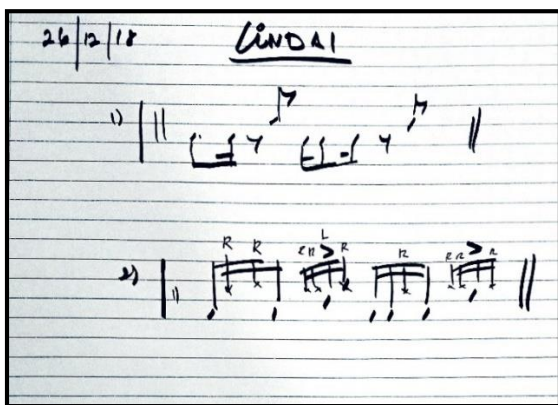 26/12/18 LINDAI
1)
2)
R R R R L R R R R R